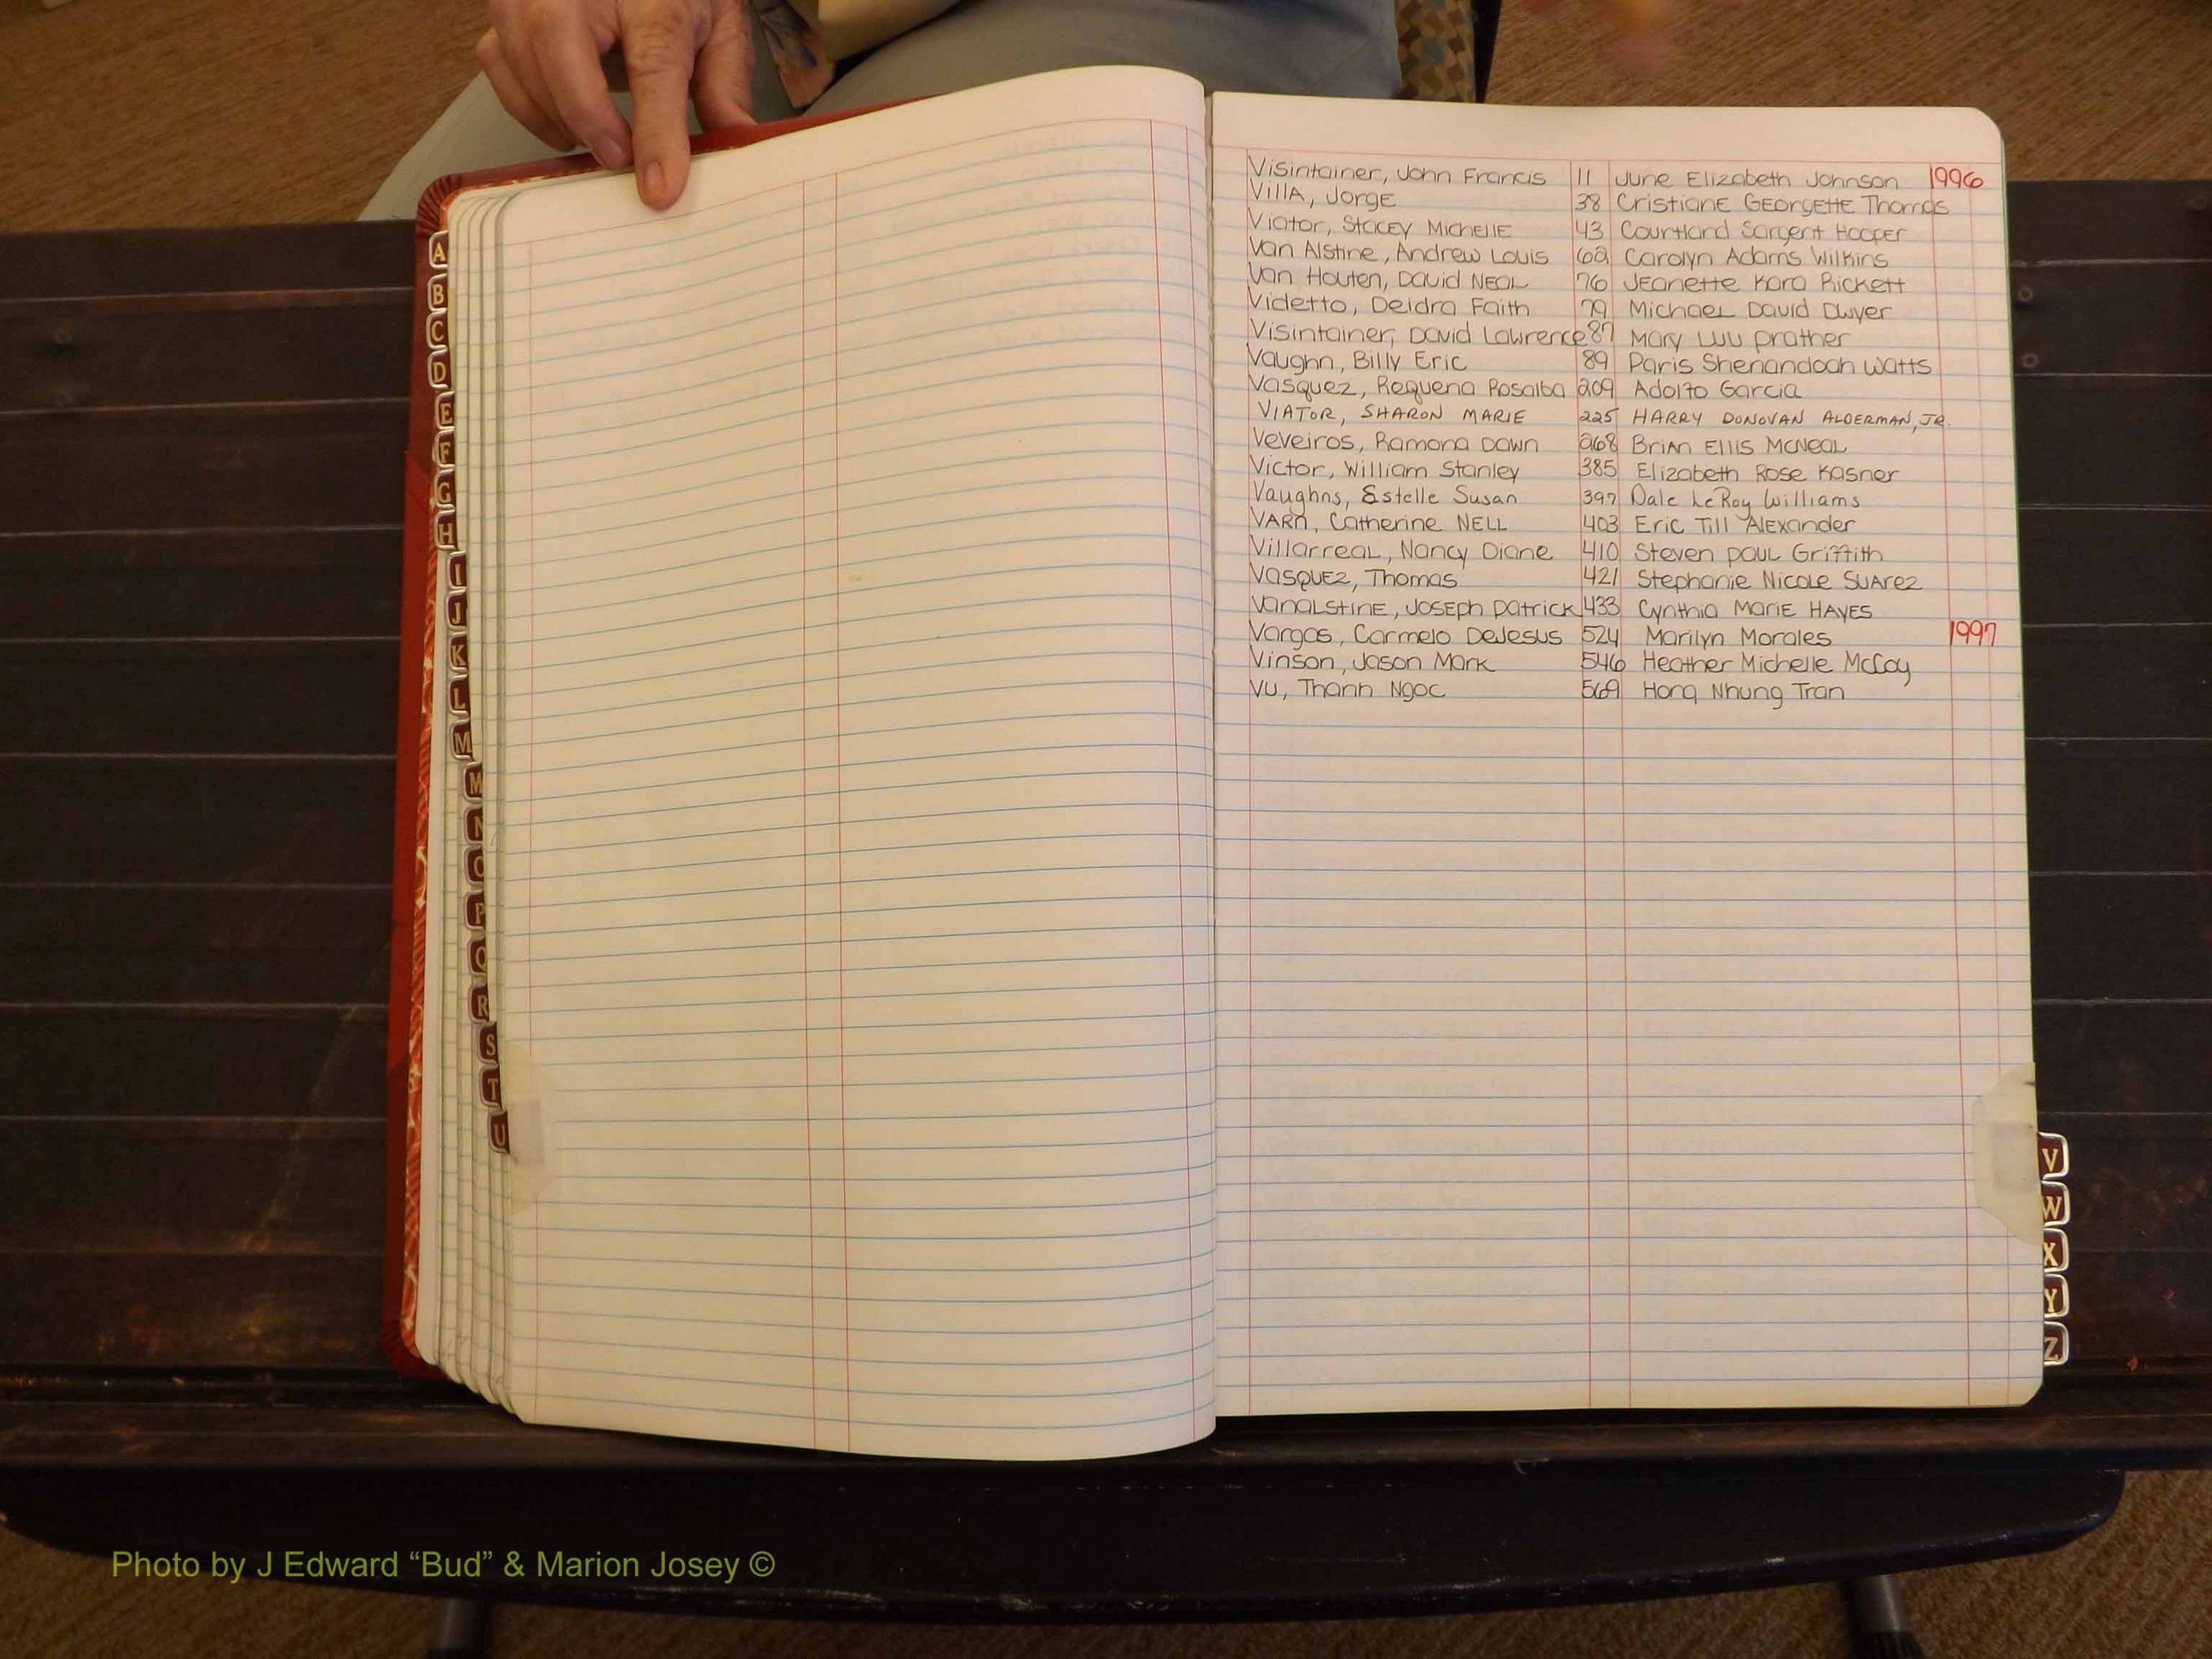 A
B
C
D
E
F
G
H
I
J
K
L
M
M
N
O
P
Q
R
S
T
U
Visintainer, John Francis 11 June Elizabeth Johnson 1996
Villa, Jorge 38 Cristiane Georgette Thomas
Viator, Stacey Michelle 43 Courtland Sargent Hooper
Van Alstine, Andrew Louis 62 Carolyn Adams Wilkins
Van Houten, David Neal 76 Jeanette Kara Rickett
Videtto, Deidra Faith 79 Michael David Dwyer
Visintainer, David Lawrence 87 Mary Luu Prather
Vaughn, Billy Eric 89 Paris Shenandoah Watts
Vasquez, Requena Rosalba 209 Adolfo Garcia
VIATOR, SHARON MARIE 225 HARRY DONOVAN ALDERMAN, JR.
Veveiros, Ramona Dawn 268 Brian Ellis McNeal
Victor, William Stanley 385 Elizabeth Rose Kasner
Vaughns, Estelle Susan 397 Dale LeRoy Williams
Varn, Catherine Nell 403 Eric Till Alexander
Villarreal, Nancy Diane 410 Steven Paul Griffith
Vasquez, Thomas 421 Stephanie Nicole Suarez
Vanalstine, Joseph Patrick 433 Cynthia Marie Hayes
Vargas, Carmelo DeJesus 524 Marilyn Morales 1997
Vinson, Jason Mark 546 Heather Michelle McCoy
Vu, Thanh Ngoc 569 Hong Nhung Tran
V
W
X
Y
Z
Photo by J Edward “Bud” & Marion Josey ©